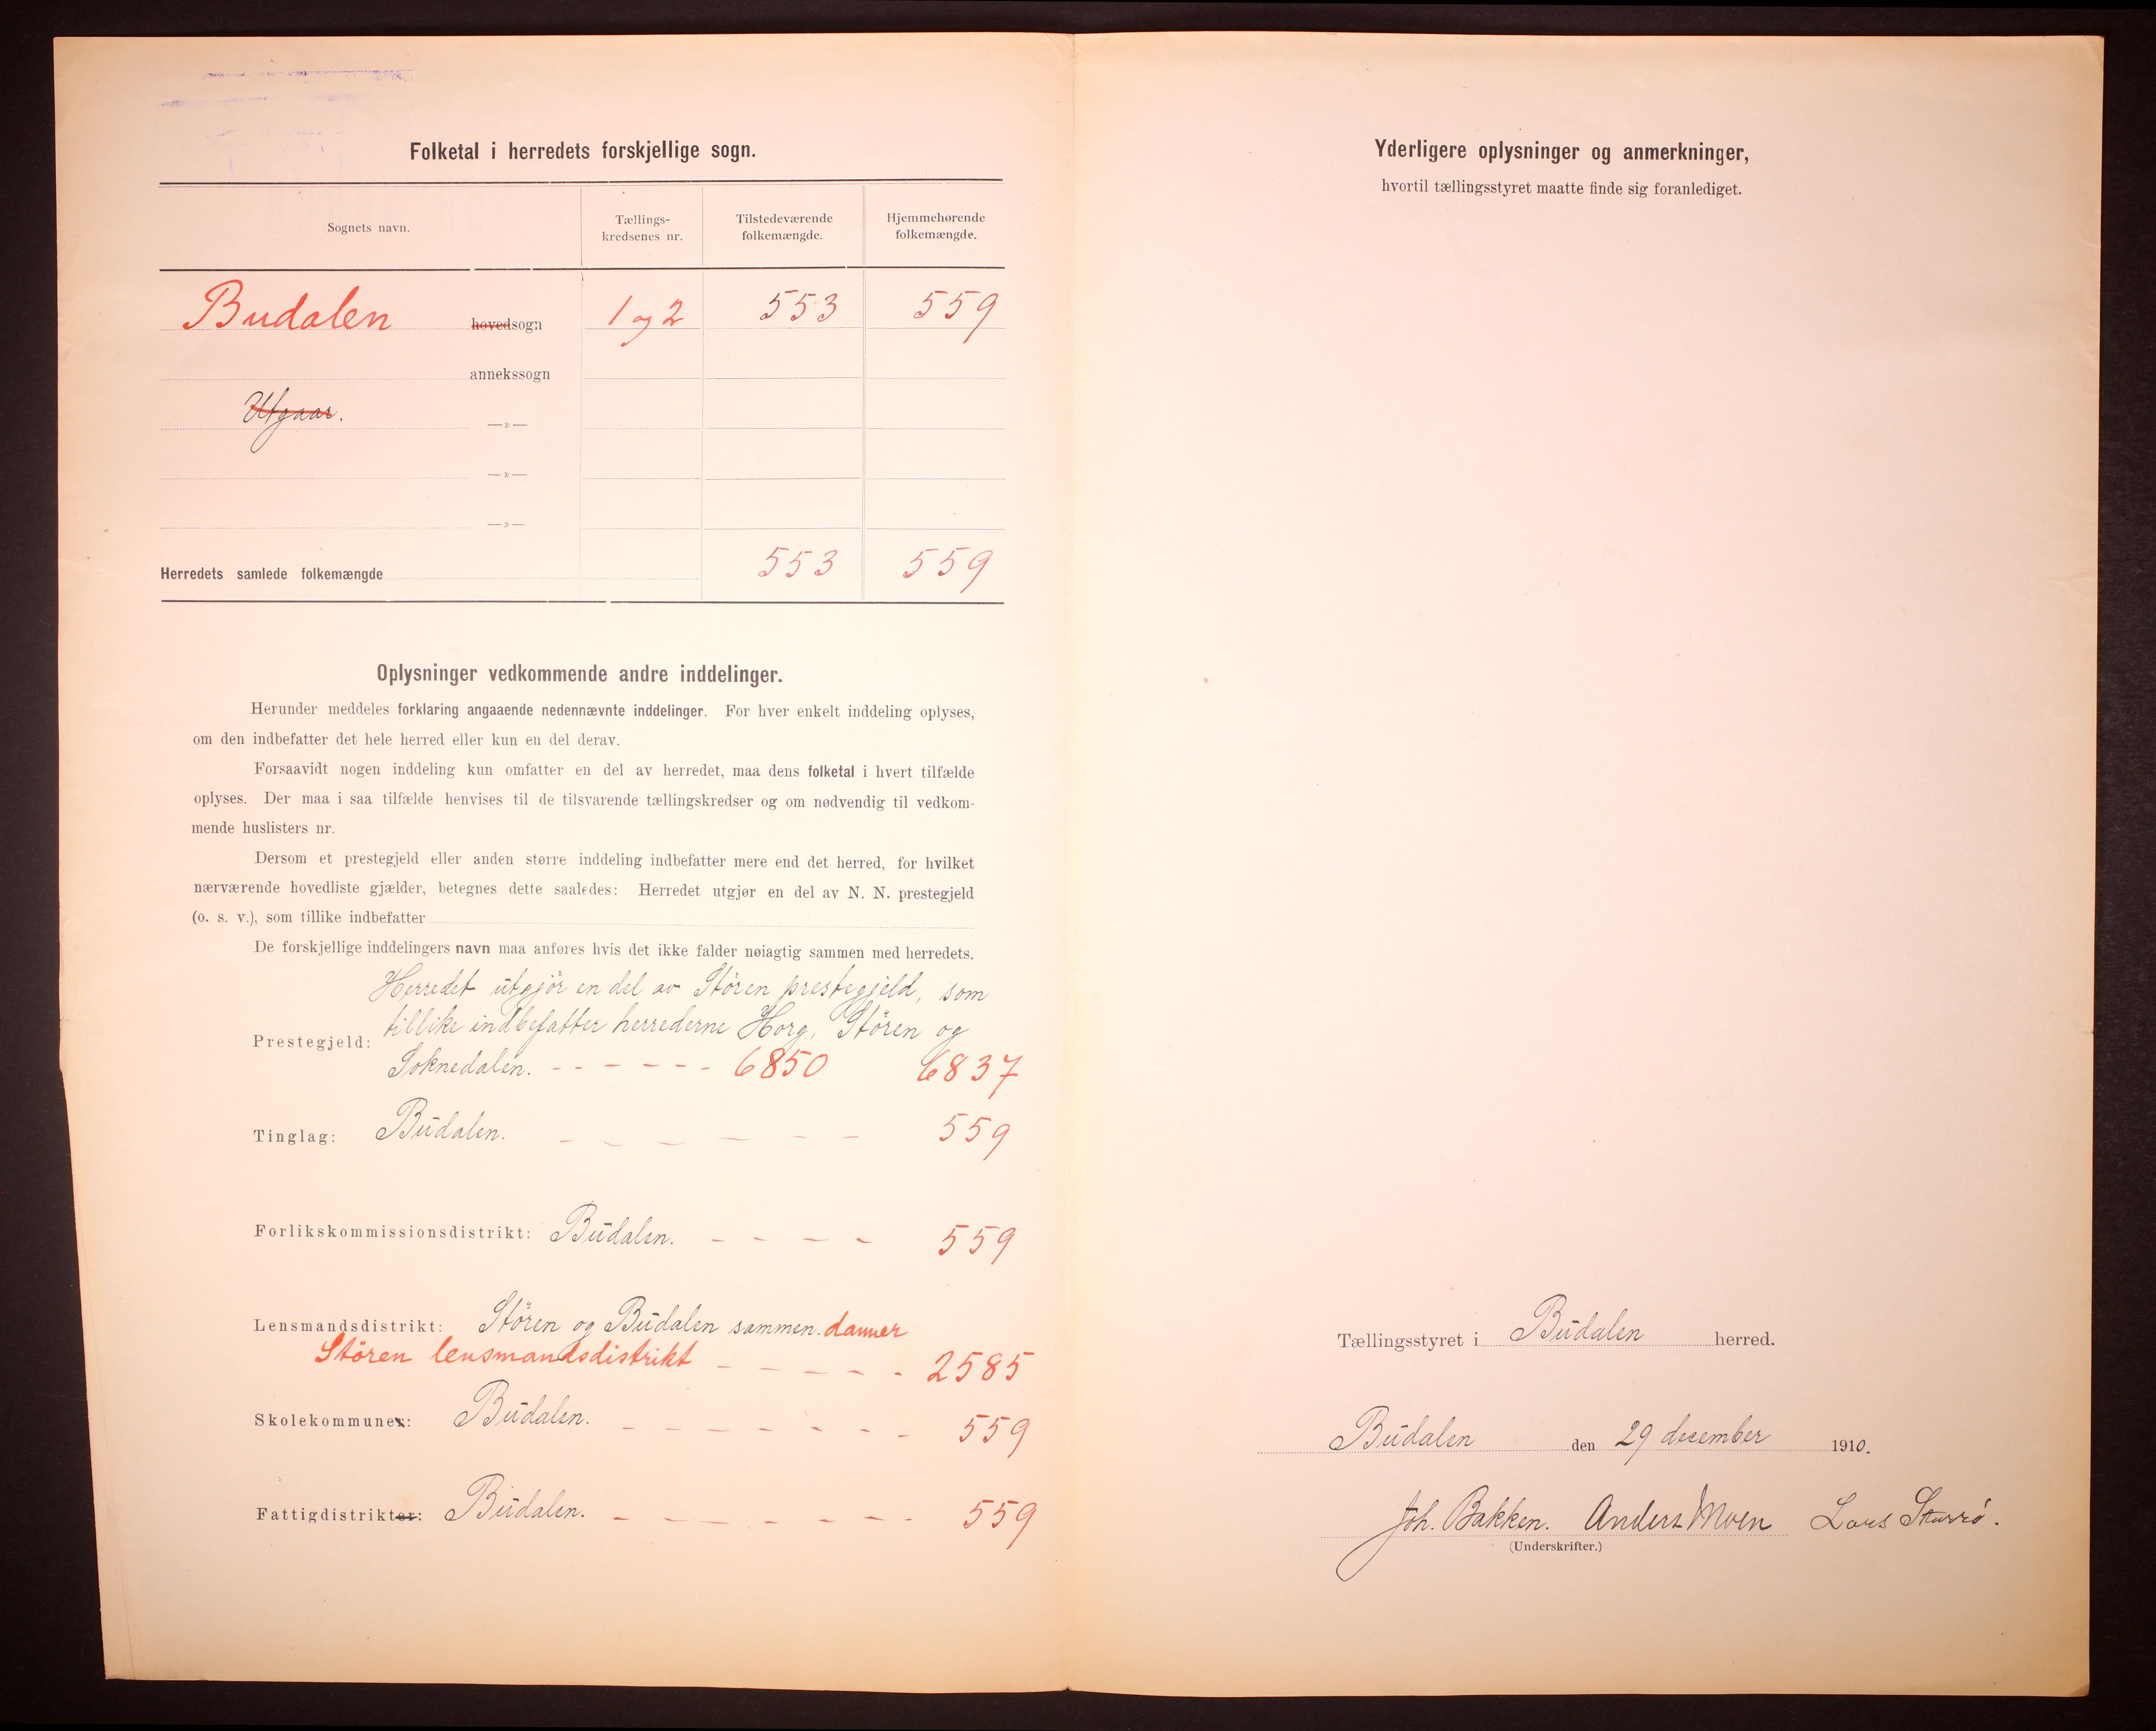 Folketal i herredets forskjellige sogn.
Sognets navn.
Tællings-
kredsenes nr.
Tilstedeværende
folkemængde.
Hjemmehørende
folkemængde.
Budalen hovedsogn 1 og 2 553 559
annekssogn
Utgaar. —»—
—»—
—»—
Herredets samlede folkemængde 553 559
Oplysninger vedkommende andre inddelinger.
Herunder meddeles forklaring angaaende nedennævnte inddelinger. For hver enkelt inddeling oplyses,
om den indbefatter det hele herred eller kun en del derav.
Forsaavidt nogen inddeling kun omfatter en del av herredet, maa dens folketal i hvert tilfælde
oplyses. Der maa i saa tilfælde henvises til de tilsvarende tællingskredser og om nødvendig til vedkom-
mende huslisters nr.
Dersom et prestegjeld eller anden større inddeling indbefatter mere end det herred, for hvilket
nærværende hovedliste gjælder, betegnes dette saaledes: Herredet utgjør en del av N. N. prestegjeld
(o. s. v.), som tillike indbefatter
De forskjellige inddelingers navn maa anføres hvis det ikke falder nøiagtig sammen med herredets.
Herredet utgjör en del av Stören prestegjeld, som
Prestegjeld: tillike indbefatter herrederne Horg, Stören og
Soknedalen. - - - - - - 6850 6837
Tinglag: Budalen. - - - - - - 559
Forlikskommissionsdistrikt: Budalen. - - - - 559
Lensmandsdistrikt: Stören og Budalen sammen. danner
Stören lensmandsdistrikt - - - - - 2585
Skolekommuner: Budalen. - - - - - - - 559
Fattigdistrikter: Budalen. - - - - - - - 559
Yderligere oplysninger og anmerkninger,
hvortil tællingsstyret maatte finde sig foranlediget.
Tællingsstyret i Budalen herred.
Budalen den 29 december 1910.
Joh. Bakken. Anders Moen Lars Storrö.
(Underskrifter.)